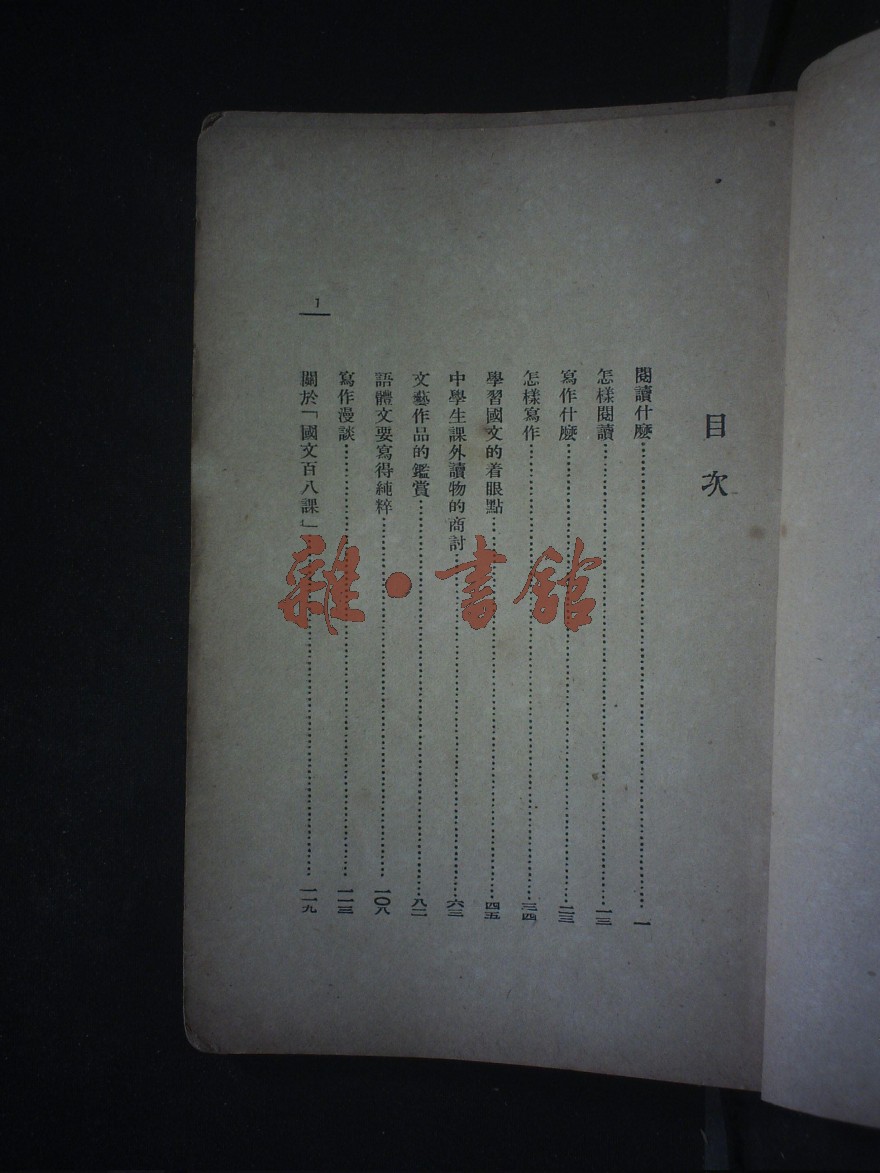 目次
閱讀什麼……一
怎樣閱讀……一三
寫作什麼……二三
怎樣寫作……三四
學習國文的着眼點……四五
中學生課外讀物的商討……六三
文藝作品的鑑賞……八二
語體文要寫得純粹……一〇八
寫作漫談……一一三
關於「國文百八課」……一一九
1
雜·書館